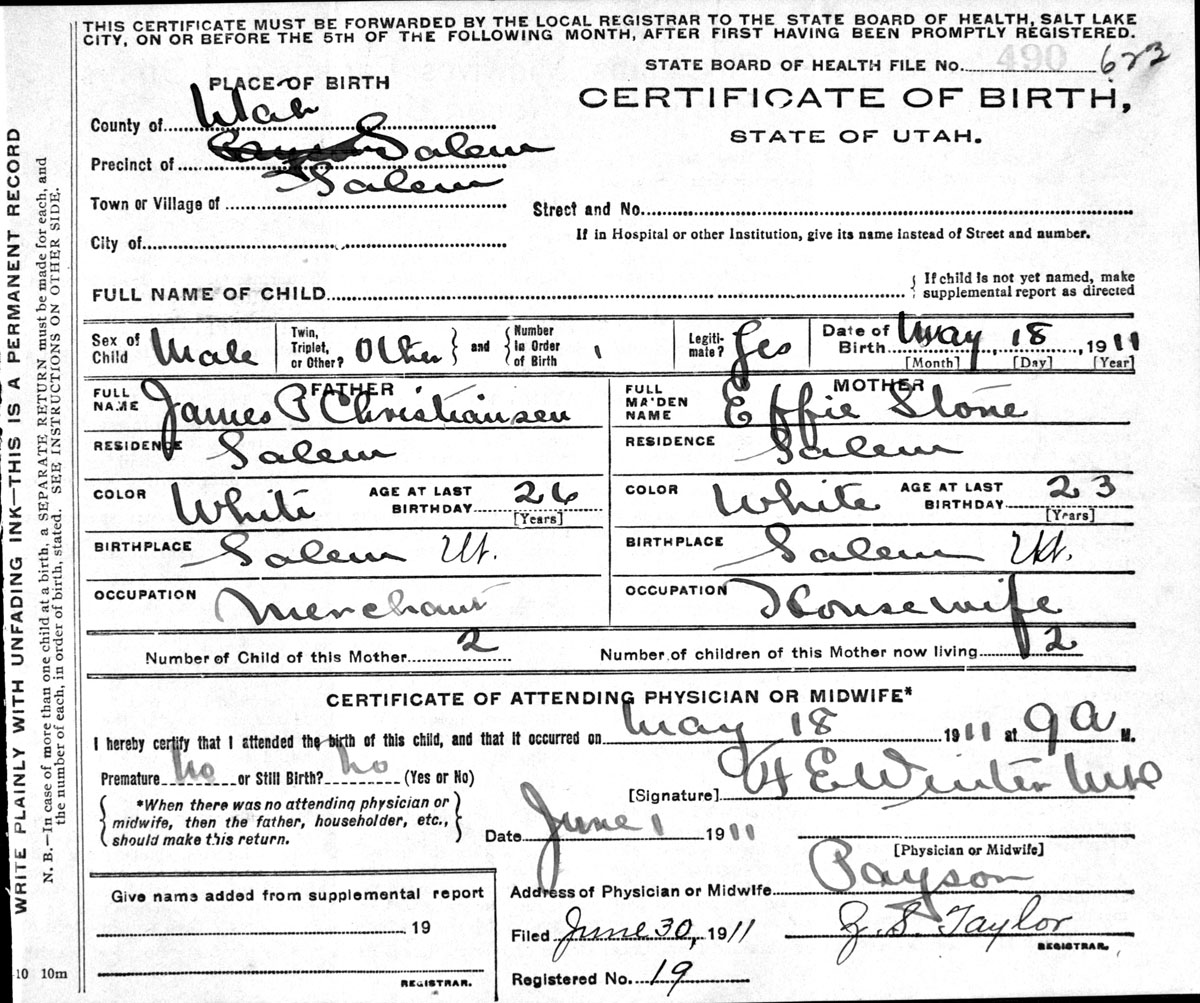 THIS CERTIFICATE MUST BE FORWARDED BY THE LOCAL REGISTRAR TO THE STATE BOARD OF HEALTH, SALT LAKE
CITY, ON OR BEFORE THE 5TH OF THE FOLLOWING MONTH, AFTER FIRST HAVING BEEN PROMPTLY REGISTERED.
STATE BOARD OF HEALTH FILE NO. 490 623
PLACE OF BIRTH
CERTIFICATE OF BIRTH,
STATE OF UTAH.
County of Utah
Precinct of Salem
Town or Village of Salem
Street and No.
City of
If in Hospital or other Institution, give its name instead of Street and number.
FULL NAME OF CHILD
If child is not yet named, make
supplemental report as directed
Sex of Child Male
Twin, Triplet, or Other? Other and Number in Order of Birth 1
Legitimate? Yes
Date of Birth May 18, 1911
[Month] [Day] [Year]
FATHER
FULL NAME James P Christiansen
MOTHER
FULL MAIDEN NAME Effie Stone
RESIDENCE Salem
RESIDENCE Salem
COLOR White AGE AT LAST BIRTHDAY 26 [Years]
COLOR White AGE AT LAST BIRTHDAY 23 [Years]
BIRTHPLACE Salem Ut.
BIRTHPLACE Salem Ut.
OCCUPATION Merchant
OCCUPATION Housewife
Number of Child of this Mother 2
Number of children of this Mother now living 2
CERTIFICATE OF ATTENDING PHYSICIAN OR MIDWIFE*
I hereby certify that I attended the birth of this child, and that it occurred on May 18 1911 at 9 a M.
Premature No or Still Birth? No (Yes or No)
[Signature] H E Winter MD
*When there was no attending physician or
midwife, then the father, householder, etc.,
should make this return.
Date June 1 1911
[Physician or Midwife]
Address of Physician or Midwife Payson
Give name added from supplemental report
19
REGISTRAR.
Filed June 30, 1911
J. S. Taylor
REGISTRAR.
Registered No. 19
WRITE PLAINLY WITH UNFADING INK—THIS IS A PERMANENT RECORD
N. B.—In case of more than one child at a birth, a SEPARATE RETURN must be made for each, and
the number of each, in order of birth, stated. SEE INSTRUCTIONS ON OTHER SIDE.
10 10m